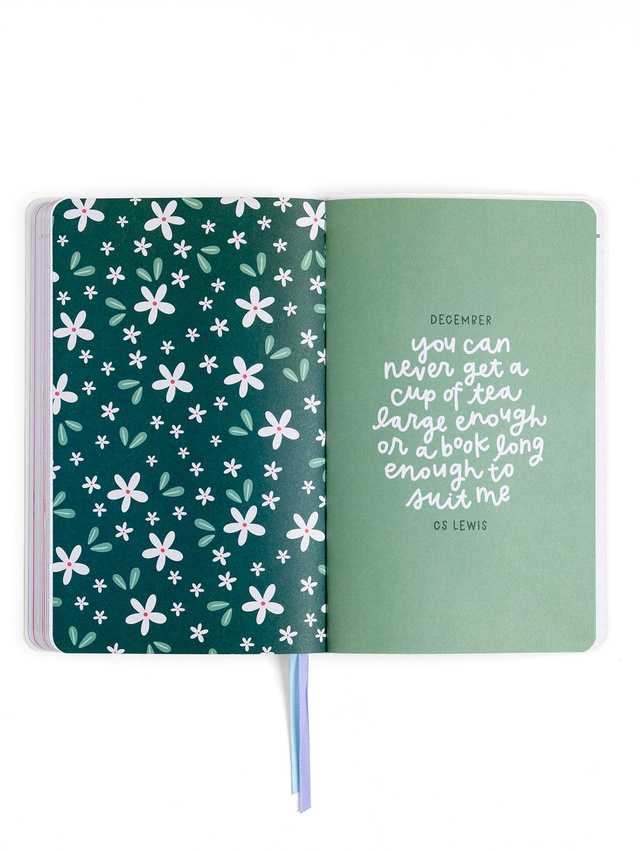 DECEMBER
you can
never get a
cup of tea
large enough
or a book long
enough to
suit me
CS LEWIS